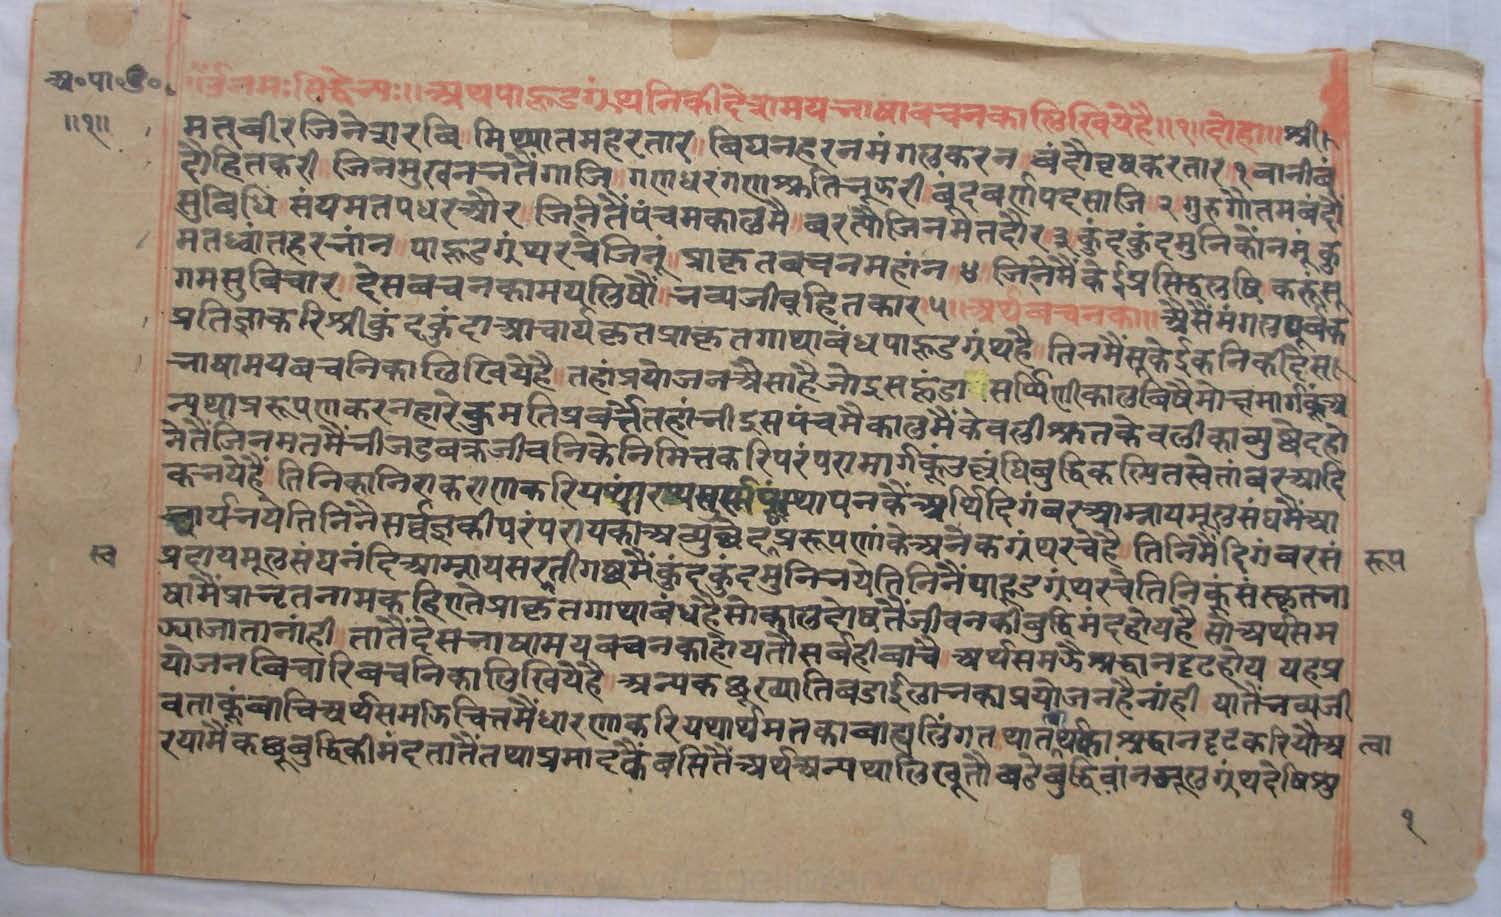 अ॰पा॰ड॰
॥१॥
॥ॐनमःसिद्धेभ्यः॥अथपाहुडग्रंथनिकीदेशभाषामयवचनकालिखियेहै॥१॥दोहा॥श्री
मतबीरजिनेशरबि मिथ्यातमहरतार बिघनहरनमंगलकरन बंदौवृषकरतार १ बानीबं
दौहितकरी जिनमुखनभतैंगाजि गणधरगणश्रुतिभूझरी बूंदबर्णपदसाजि २ गुरुगौतमबंदौ
सुबिधि संयमतपधरऔर जिनितैंपंचमकालमै बरत्यौजिनमतदौर ३ कुंदकुंदमुनिकौंनमूं कु
मतध्वांतहरभांन पाहुडग्रंथरचेजिनूं प्राकृतबचनमहांन ४ जिनिमैंकेईप्रसिद्धलषि करूंसु
गमसुबिचार देसबचनकामयलिषौं भव्यजीवहितकार ५॥अर्थबचनका॥ऐसैंमंगलपूर्बक
प्रतिज्ञाकरिश्रीकुंदकुंदाआचार्यकृतप्राकृतगाथाबंधपाहुडग्रंथहै तिनमैंसूकेईकनिकीदेस
भाषामयबचनिकालिखियेहै तहांप्रयोजनऐसाहैजोइसहुंडा सर्प्पिणीकालबिषैमोक्षमार्गकूंअ
न्यथाप्ररूपणकरनहारेकुमतिप्रबर्त्तैतहांभीइसपंचमैकालमैंकेवलीश्रुतकेवलीकाव्युच्छेदहो
नेतैंजिनमतमैंभीजडबक्रजीवनिकेनिमित्तकरिपरंपरामार्गकूंउल्लंघिबुद्धिकल्पितस्वेतांबरआदि
कभयेहैं तिनिकानिराकरणकरियथा स्थापनकैअर्थिदिगंबरआम्नायमूलसंघमैंआ
चार्यभयेतिनिनैसर्वज्ञकीपरंपरायकाअव्युच्छेदप्ररूपणांकेअनेकग्रंथरचेहै तिनिमैंदिगंबरसं
प्रदायमूलसंघनंदिआम्नायसरतीगछमैंकुंदकुंदमुनिभयेतिनिनैंपाहुडग्रंथरचेतिनिकूंसंस्कृतभा
षामैंप्राभृतनामकहिएतैप्राकृतगाथाबंधहैसोकालदोषतैंजीवनकीबुद्धिमंदहोयहै सोअर्थसम
झ्याजातानांही तातैंदेसभाषामयबचनकाहोयतौसर्बहीबाचै अर्थसमझैश्रद्धानदृढहोय यहप्र
योजनबिचारिबचनिकालिखियेहै अन्यकछुख्यातिबडाईलाभकाप्रयोजनहैनांही यातैंभव्यजी
वताकूंबाचिअर्थसमझिचित्तमैंधारणाकरियथार्थमतकाबाह्यलिंगतथातत्वार्थकाश्रद्धानदृढकरियौअ
रयामैंकछूबुद्धिकीमंदतातैंतथाप्रमादकैबसितैंअर्थअन्यथालिखूतौबडेबुद्धिवांनमूलग्रंथदेषिशु
स्व
रूप
त्वा
१